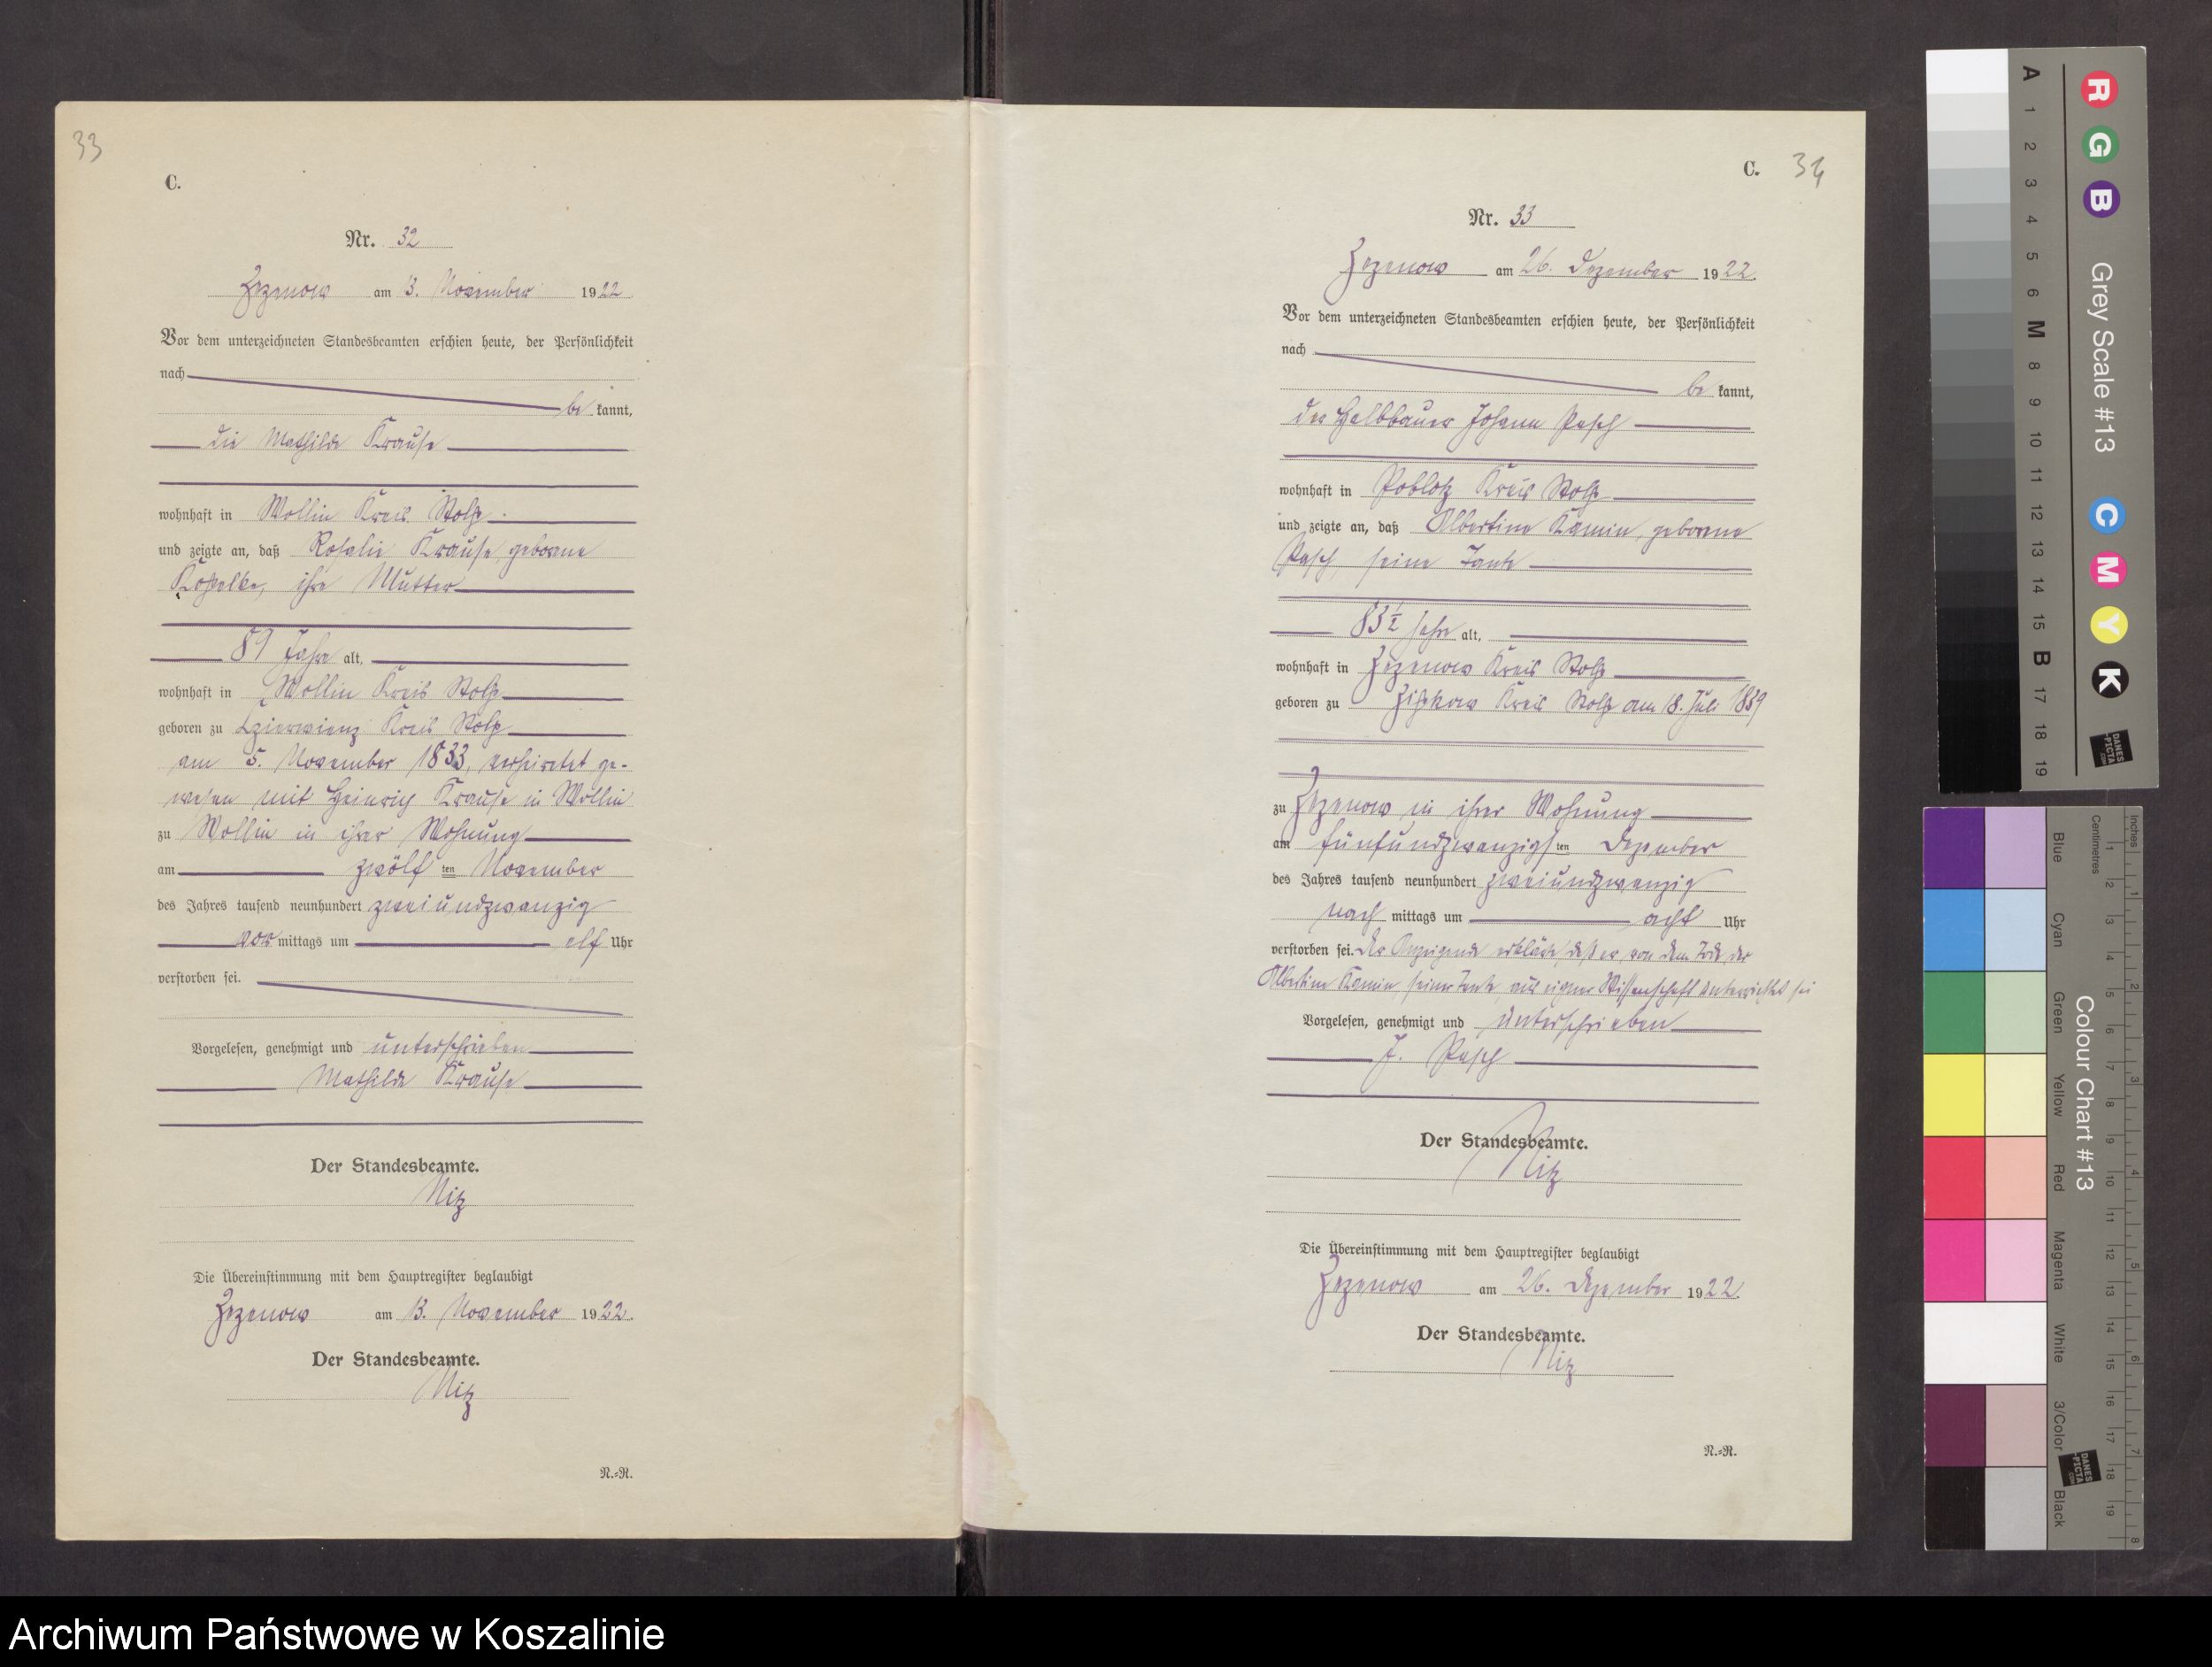 33
C.
Nr. 32
Zezenow am 13. November 1922.
Vor dem unterzeichneten Standesbeamten erschien heute, der Persönlichkeit
nach
be kannt,
die Mathilde Krause
wohnhaft in Wollin Kreis Stolp.
und zeigte an, daß Rosalie Krause, geborene
ihre Mutter
89 Jahre alt,
wohnhaft in Wollin Kreis Stolp
geboren zu Czierwienz Kreis Stolp
am 5. November 1833, verheiratet ge-
wesen mit Heinrich Krause in Wollin
zu Wollin in ihrer Wohnung
am zwölf ten November
des Jahres tausend neunhundert zweiundzwanzig
vor mittags um elf Uhr
verstorben sei.
Vorgelesen, genehmigt und unterschrieben
Mathilde Krause
Der Standesbeamte.
Nitz
Die Übereinstimmung mit dem Hauptregister beglaubigt
Zezenow am 13. November 1922.
Der Standesbeamte.
Nitz
N.=R.
C. 34
Nr. 33
Zezenow am 26. Dezember 1922.
Vor dem unterzeichneten Standesbeamten erschien heute, der Persönlichkeit
nach
be kannt,
der Halbbauer Johann Pasch
wohnhaft in Poblotz Kreis Stolp
und zeigte an, daß Albertine Kamin, geborene
Pasch, seine Tante
83½ Jahre alt,
wohnhaft in Zezenow Kreis Stolp
geboren zu Zipkow Kreis Stolp am 18. Juli 1839
zu Zezenow in ihrer Wohnung
am fünfundzwanzigs ten Dezember
des Jahres tausend neunhundert zweiundzwanzig
nach mittags um acht Uhr
verstorben sei. Der Anzeigende erklärte, daß er von dem Tode der
Albertine Kamin, seiner Tante, aus eigner Wissenschaft unterrichtet sei
Vorgelesen, genehmigt und unterschrieben
J. Pasch
Der Standesbeamte.
Nitz
Die Übereinstimmung mit dem Hauptregister beglaubigt
Zezenow am 26. Dezember 1922.
Der Standesbeamte.
Nitz
N.=R.
A 1 2 3 4 5 6 M 8 9 10 11 12 13 14 15 B 17 18 19
R G B Grey Scale #13 C M Y K
DANES
-PICTA
.COM
Blue Cyan Green Yellow Red Magenta White 3/Color Black
Colour Chart #13
Centimetres 1 2 3 4 5 6 7 8 9 10 11 12 13 14 15 16 17 18 19
Inches 1 2 3 4 5 6 7 8
DANES
-PICTA
.COM
Archiwum Państwowe w Koszalinie